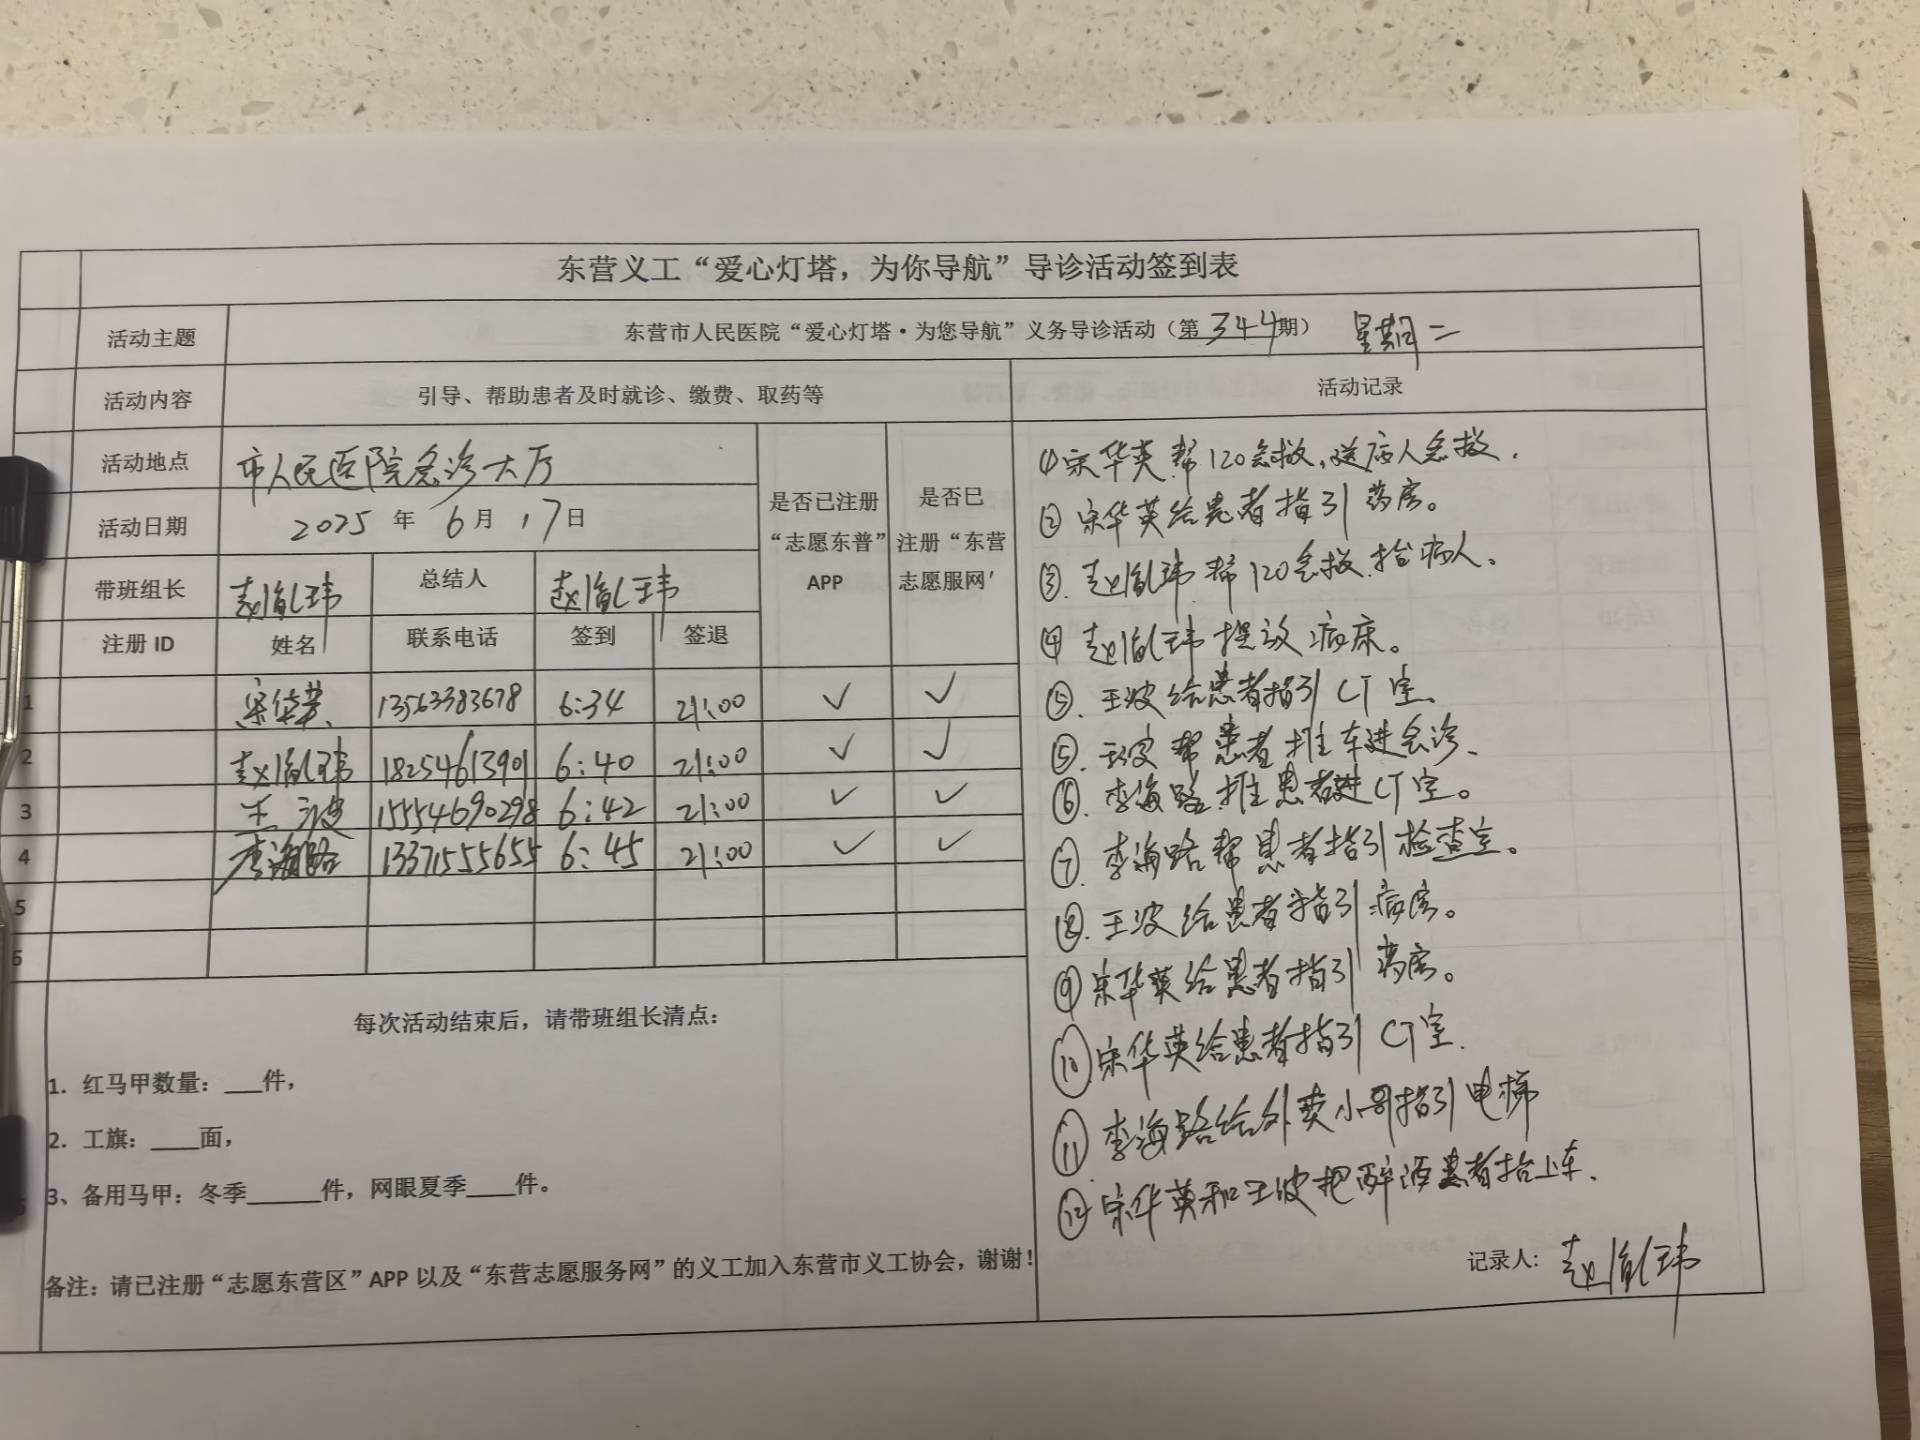 东营义工“爱心灯塔，为你导航”导诊活动签到表
活动主题 东营市人民医院“爱心灯塔·为您导航”义务导诊活动（第344期） 星期二
活动内容 引导、帮助患者及时就诊、缴费、取药等 活动记录
活动地点 市人民医院急诊大厅
活动日期 2025年6月17日
是否已注册“志愿东普”APP
是否已注册“东营志愿服网’
带班组长 赵胤玮 总结人 赵胤玮
注册 ID 姓名 联系电话 签到 签退
1 宋华英 13563383678 6:34 21:00 ✓ ✓
2 赵胤玮 18254613901 6:40 21:00 ✓ ✓
3 王波 15554690298 6:42 21:00 ✓ ✓
4 李海路 13371555655 6:45 21:00 ✓ ✓
5
6
每次活动结束后，请带班组长清点：
1. 红马甲数量：___件，
2. 工旗：____面，
3、备用马甲：冬季______件，网眼夏季____件。
备注：请已注册“志愿东营区”APP 以及“东营志愿服务网”的义工加入东营市义工协会，谢谢！
① 宋华英帮120急救，送病人急救.
② 宋华英给患者指引药房。
③. 赵胤玮帮120急救抬病人。
④ 赵胤玮提议病床。
⑤. 王波给患者指引CT室.
⑤. 王波帮患者推车进急诊.
⑥. 李海路推患者进CT室。
⑦. 李海路帮患者指引检查室。
⑧. 王波给患者指引病房。
⑨ 宋华英给患者指引药房。
⑩ 宋华英给患者指引CT室.
⑪ 李海路给外卖小哥指引电梯
⑫ 宋华英和王波把醉酒患者抬上车.
记录人: 赵胤玮